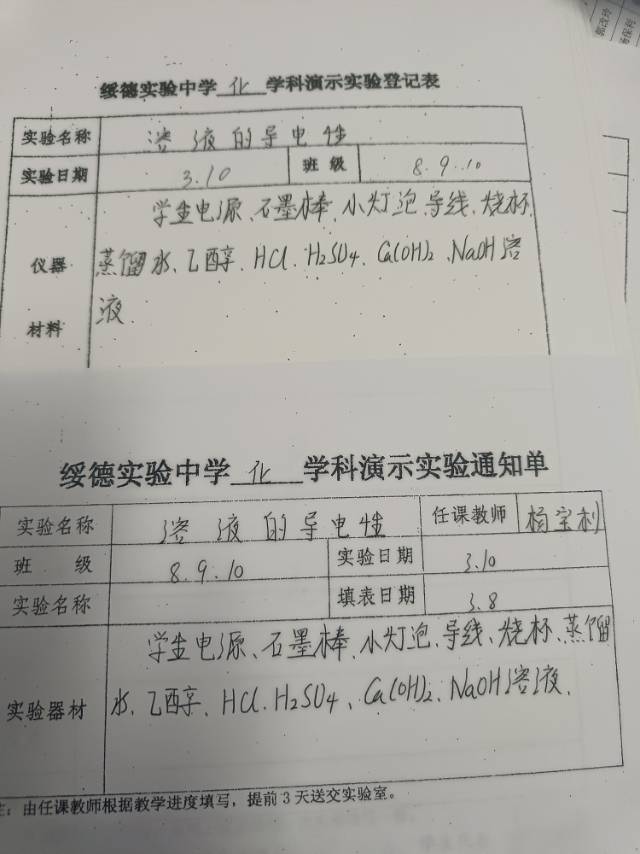 绥德实验中学 化 学科演示实验登记表
实验名称 溶液的导电性
实验日期 3.10 班级 8.9.10
学生电源、石墨棒、小灯泡、导线、烧杯、
仪器 蒸馏水、乙醇、HCl、H2SO4、Ca(OH)2、NaOH溶
材料 液
绥德实验中学 化 学科演示实验通知单
实验名称 溶液的导电性 任课教师 杨宝利
班级 8.9.10 实验日期 3.10
实验名称 填表日期 3.8
学生电源、石墨棒、小灯泡、导线、烧杯、蒸馏
实验器材 水、乙醇、HCl、H2SO4、Ca(OH)2、NaOH溶液、
注：由任课教师根据教学进度填写，提前3天送交实验室。